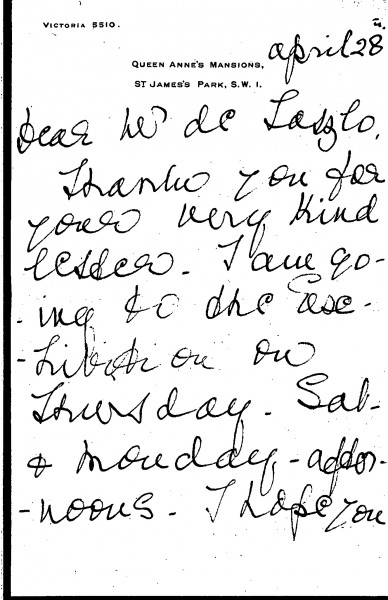 VICTORIA 5510.
QUEEN ANNE'S MANSIONS,
ST JAMES'S PARK, S.W. 1.
April 28
Dear Mr de Laszlo,
Thank you for
your very kind
letter. I am go-
-ing to the Exe-
-hibition on
Thursday. Sat.
& Monday - after-
-noons. I hope you